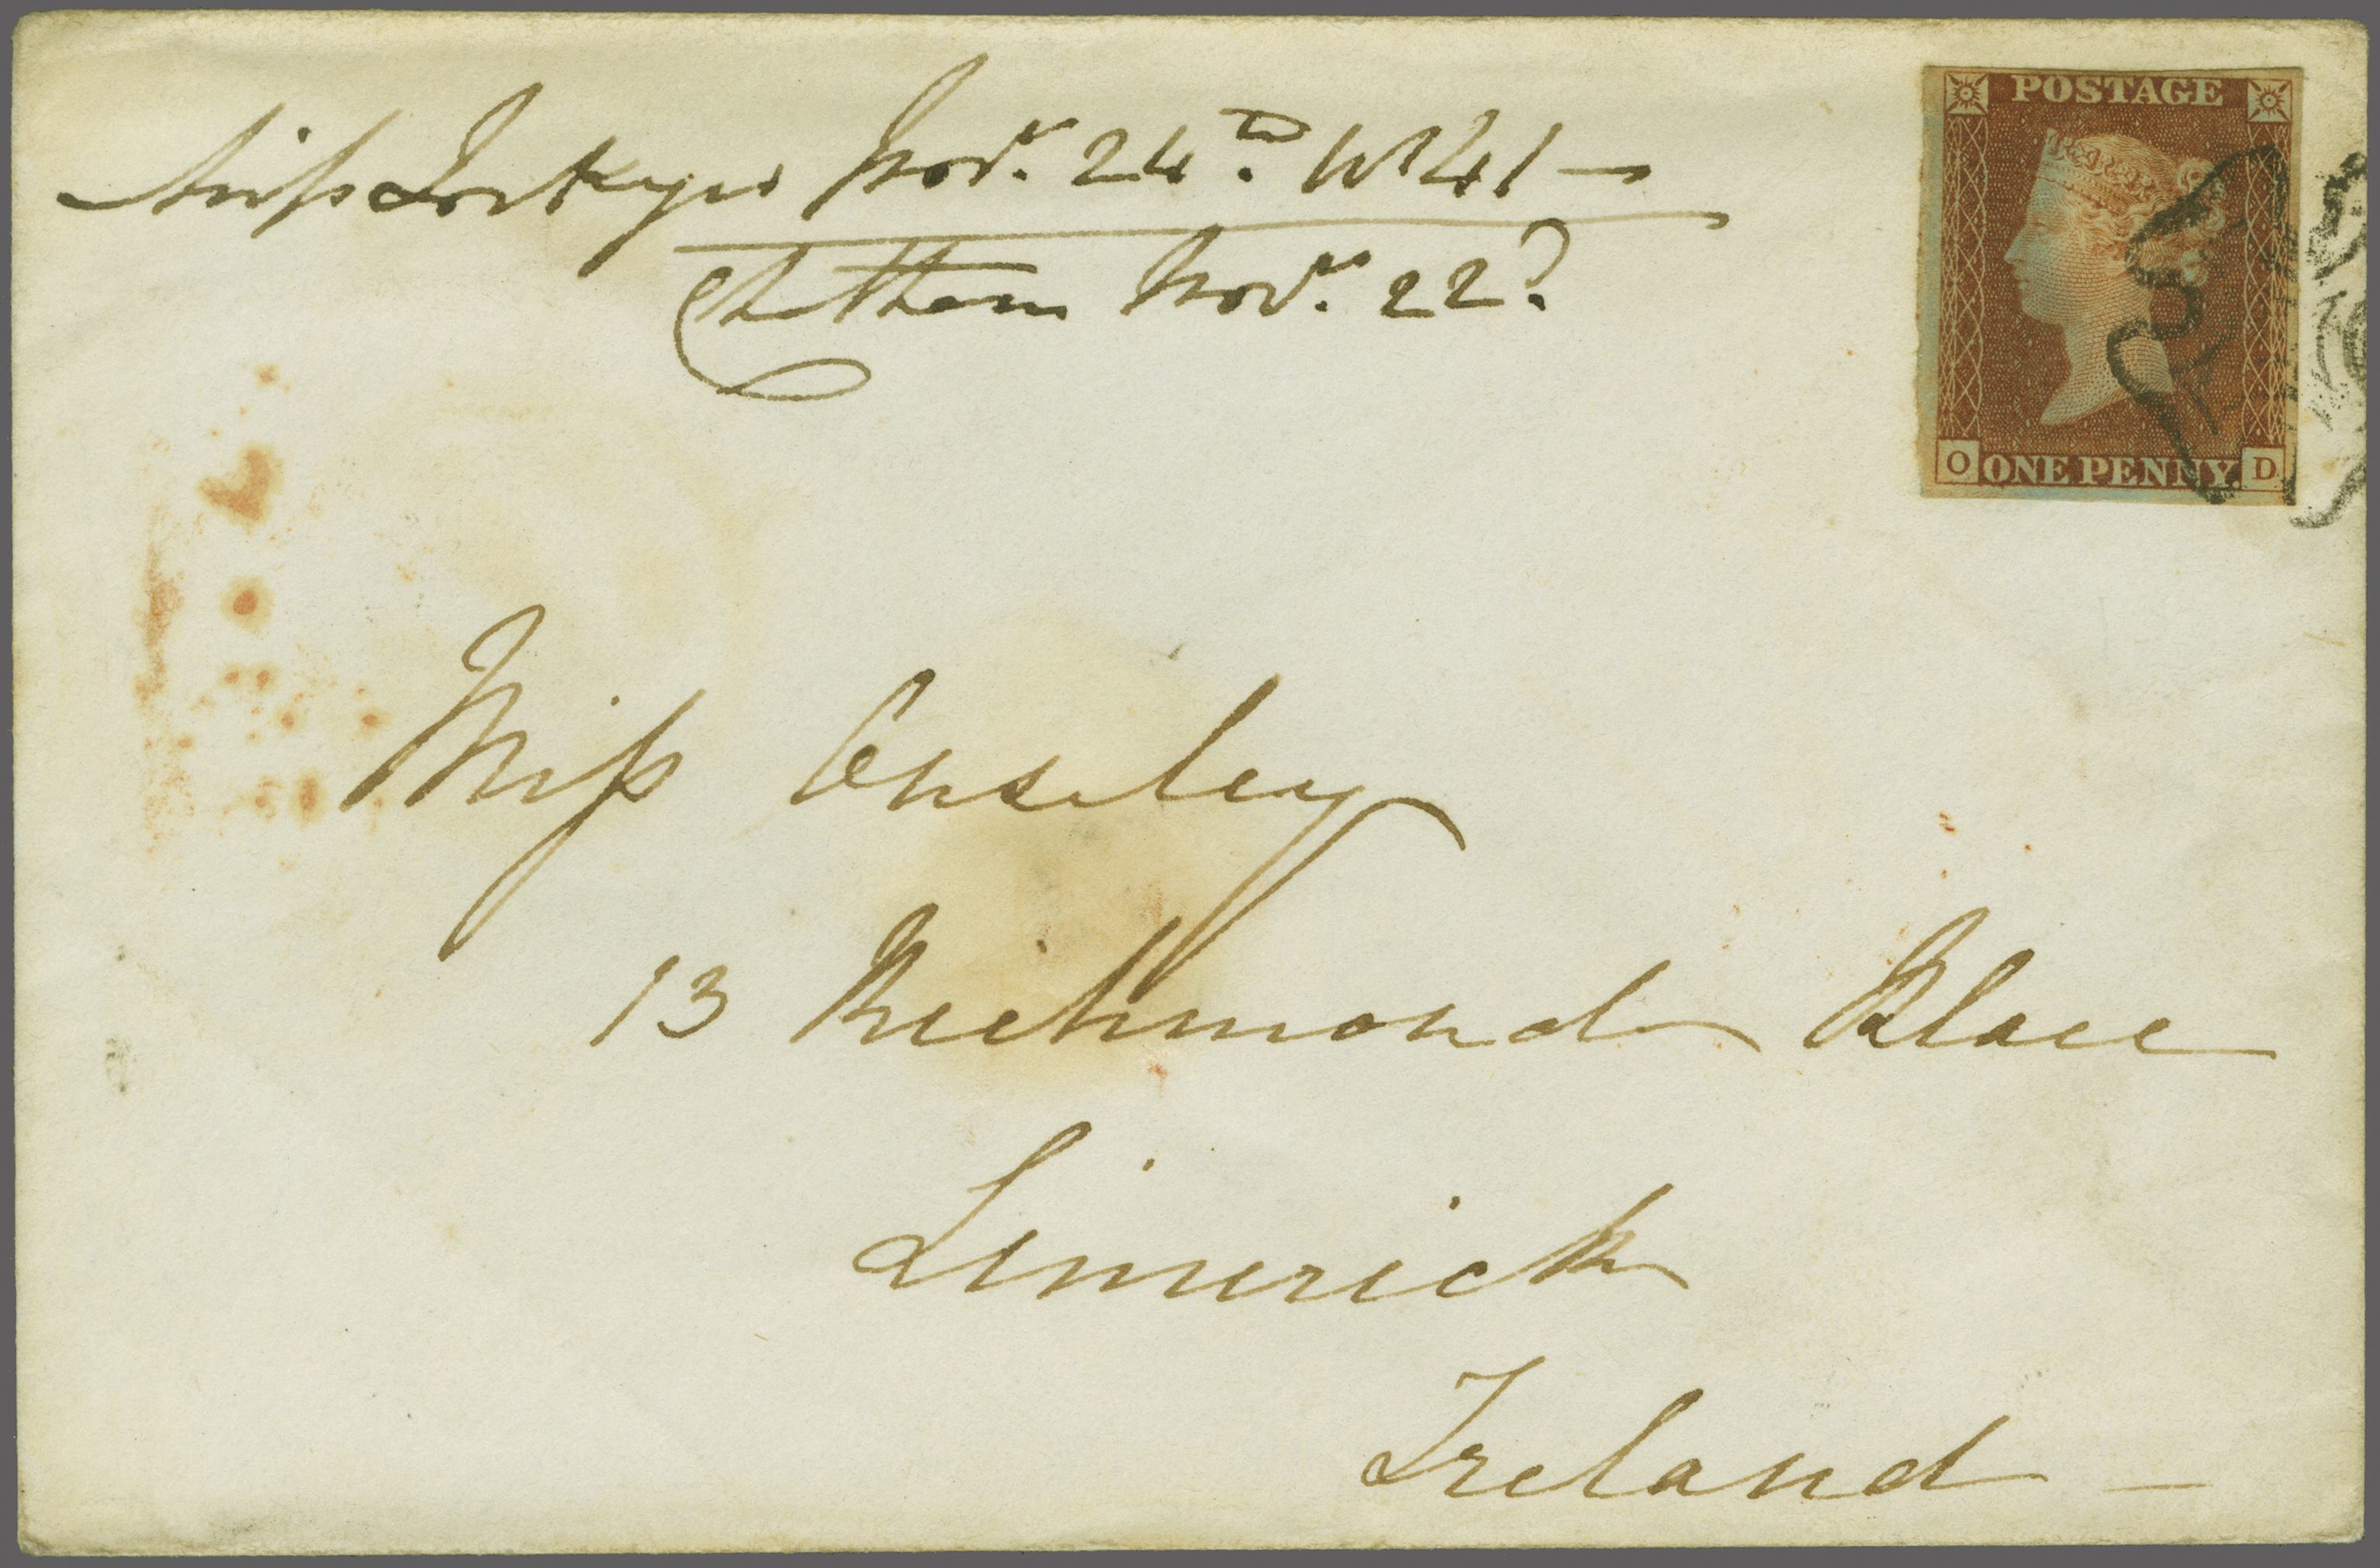 Miss Lockyer Novr. 24th 1841 —
Chatham Novr. 22d.
POSTAGE
O ONE PENNY. D
Miss Ousley
13 Richmond Place
Limerick
Ireland —